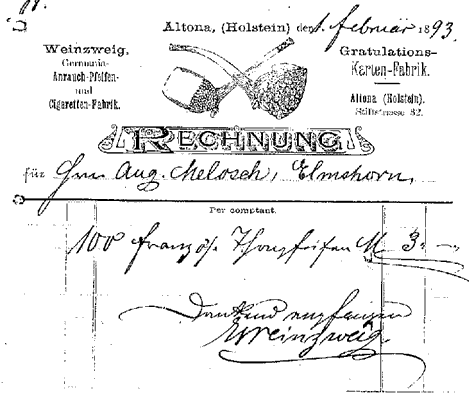 Altona, (Holstein) den 1. Februar 1893.
Weinzweig,
Germania-
Anrauch-Pfeifen-
und
Cigaretten-Fabrik.
Gratulations-
Karten-Fabrik.
Altona (Holstein).
Stiftstrasse 32.
RECHNUNG
für Hrn Aug. Melosch, Elmshorn,
Per comptant.
100 französ. Thonpfeifen M 3.—
Dankend empfangen
Weinzweig.